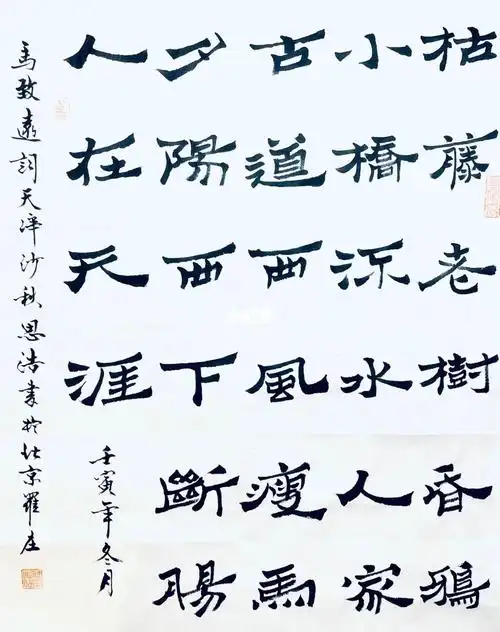 枯藤老樹昏鴉
小橋流水人家
古道西風瘦馬
夕陽西下斷腸
人在天涯
壬寅年冬月
馬致遠詞天淨沙秋思浩書於北京羅庄